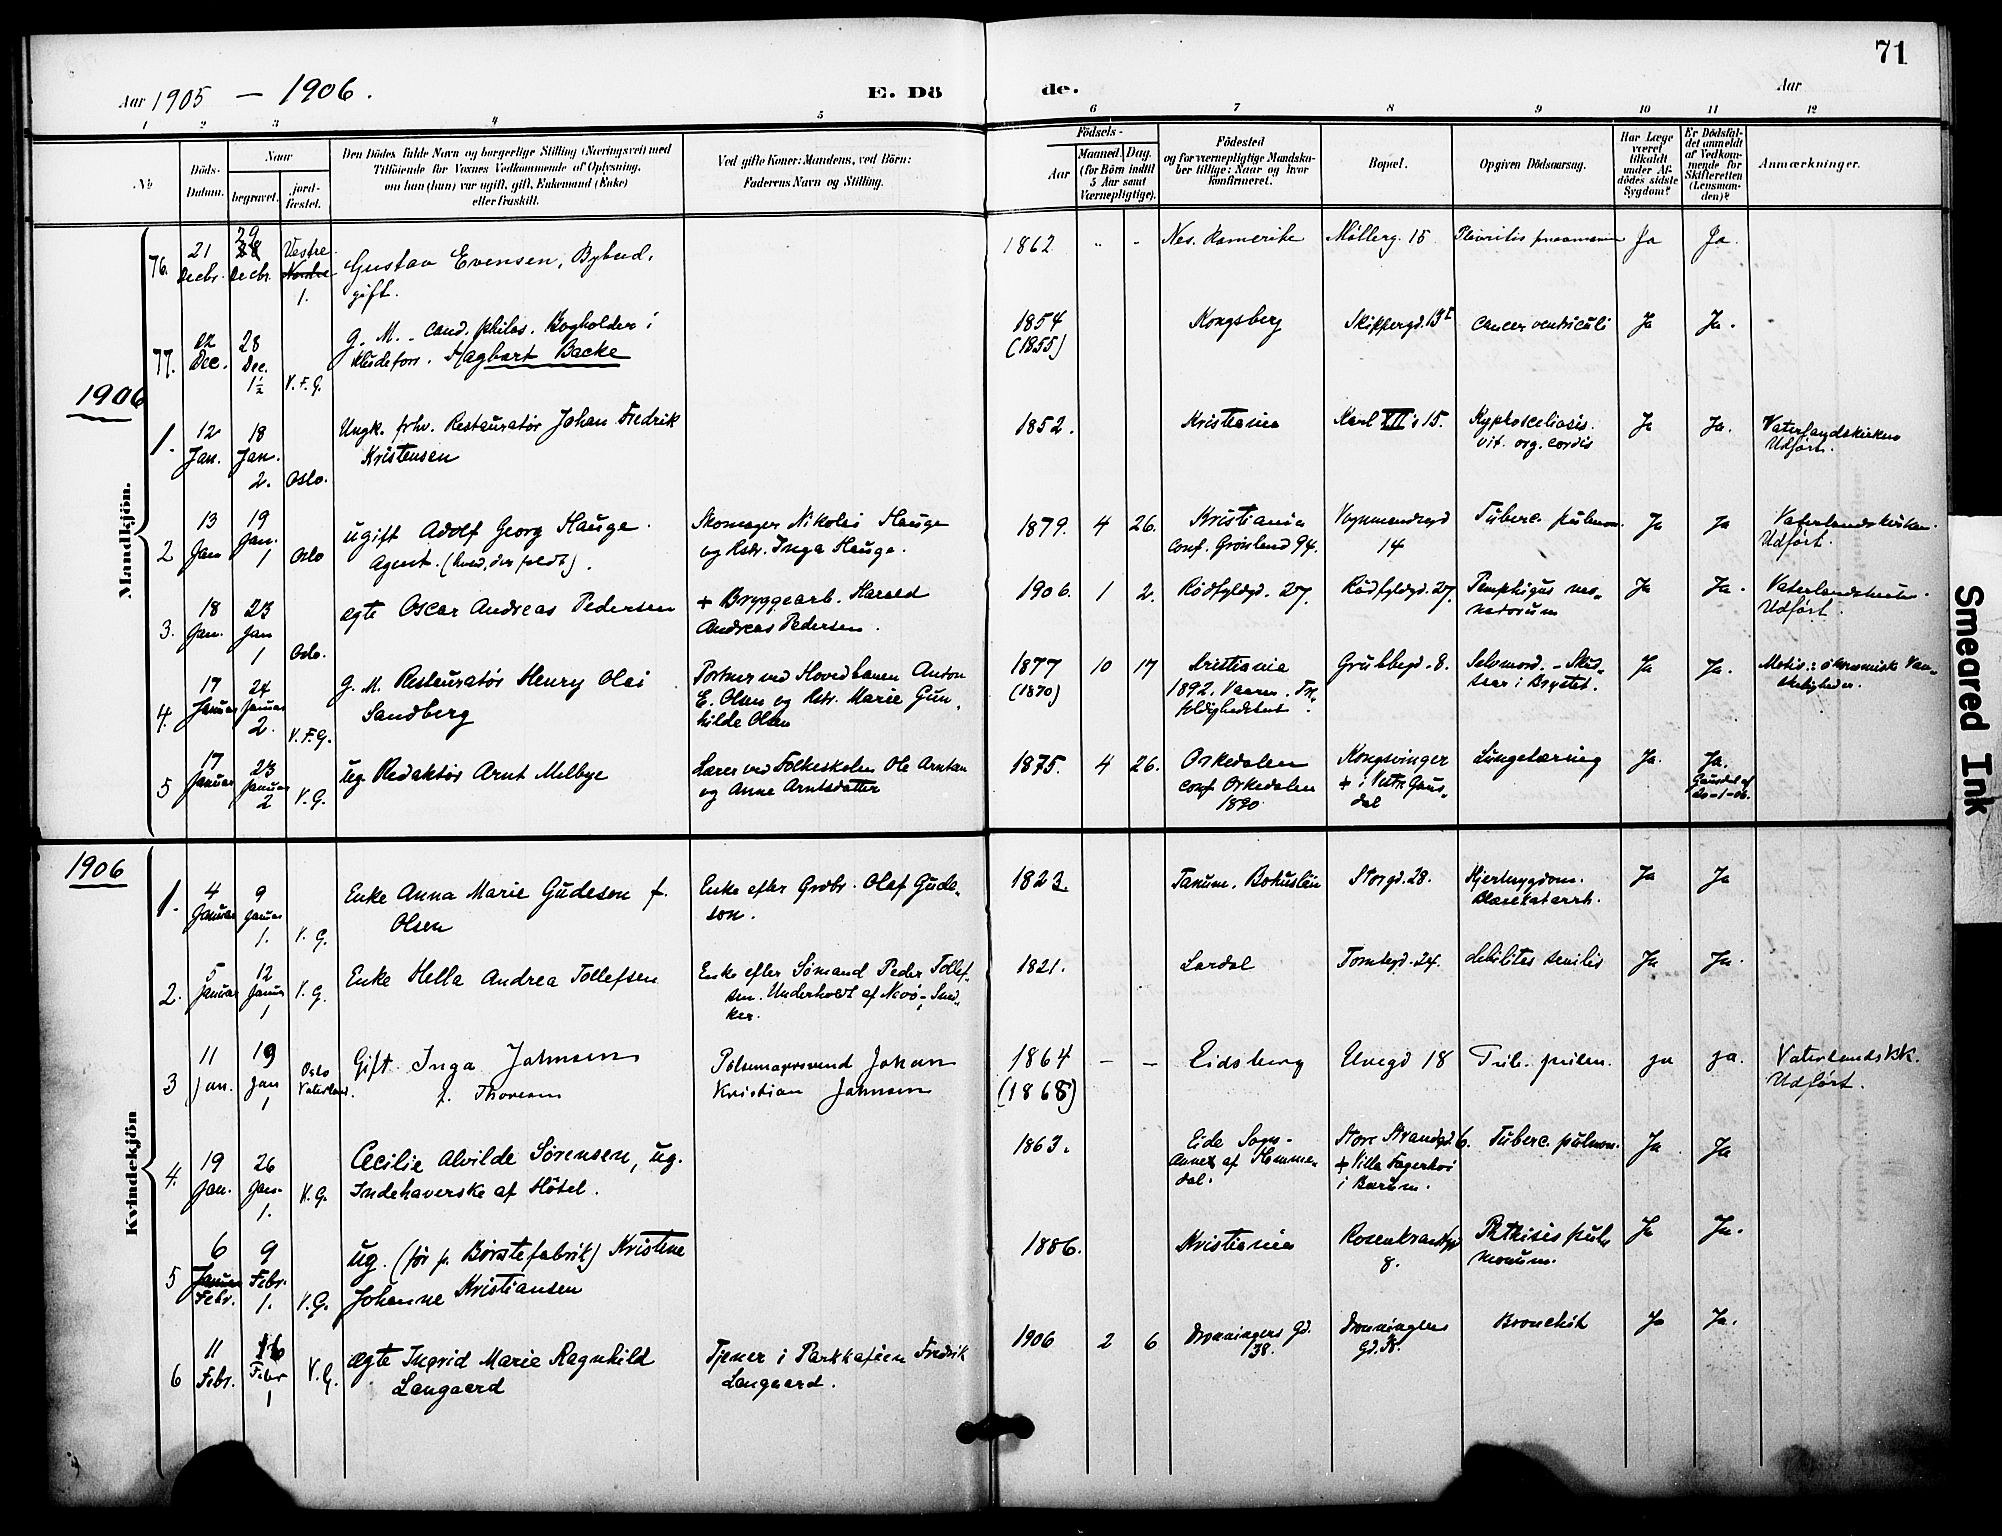 71
Aar 1905 — 1906.
E. Dö
de.
Aar
1 2 3 4 5 6 7 8 9 10 11 12
No
Döds-
Datum.
Naar
begravet.
jord-
fæstet.
Den Dödes fulde Navn og borgerlige Stilling (Næringsvei) med
Tilföiende for Voxnes Vedkommende af Oplysning,
om han (hun) var ugift, gift, Enkemand (Enke)
eller fraskilt.
Ved gifte Koner: Mandens, ved Börn:
Faderens Navn og Stilling.
Födsels-
Aar
Maaned.
Dag.
(for Börn indtil
5 Aar samt
Værnepligtige).
Födested
og for værnepligtige Mandska-
ber tillige: Naar og hvor
konfirmeret.
Bopæl.
Opgiven Dödsaarsag.
Har Læge
været
tilkaldt
under Af-
dödes sidste
Sygdom?
Er Dödsfal-
det anmeldt
af Vedkom-
mende for
Skifteretten
(Lensman-
den)?
Anmærkninger.
Mandkjön.
76. 21 Decbr. 29 28 Decbr. 1. Vestre Nordre
Gustav Evensen, Bybud.
gift.
1862 " - Nes. Romerike Møllerg. 15 Pleuritis Ja Ja.
77. 22 Dec. 28 Dec. 1½ V.F.G.
g. M. cand. philos. Bogholder i
Hagbart Backe
1854 (1855) Kongsberg Skippergd. cancer ventriculi Ja Ja.
1906
1. 12 Jan. 18 Jan. 2. Oslo.
Ungk. frhv. Restauratør Johan Fredrik
Kristensen
1852. Kristiania Karl XII's 15. Kyphoscoliosis.
vit. org. cordis Ja Ja. Vaterlandskirken
Udført.
2 13 Jan 19 Jan. 1 Oslo
ugift Adolf Georg Hauge.
Agent.
Skomager Nikolai Hauge
og Hstr. Inga Hauge.
1879. 4 26. Kristiania
conf. Grønland 94.
Vognmandsgd
14
Tuberc. pulmon. Ja Ja Vaterlandskirken.
Udført.
3. 18 Jan. 23 Jan 1 Oslo.
ægte Oscar Andreas Pedersen
+ Bryggearb. Harald
Andreas Pedersen.
1906. 1 2. Rødfyldgd. 27. Rødfyldgd. 27. Pemphigus neo-
natorum Ja Ja. Vaterlandskirken.
Udført.
4. 17 Januar 24 Januar 2. V.F.G.
g. M. Restauratør Henry Olai
Sandberg
Portner ved Hovedbanen Anton
E. Olsen og Hstr. Marie Gun-
hilde Olsen
1877 (1870) 10 17 Kristiania
1892. Vaaren. Tre-
foldighedskirk.
Grubbegd. 8. Selvmord. - Skud-
saar i Brystet. Ja Ja. Motiv: økonomiske Van-
skeligheder.
5 17 Januar 23 Januar 2 V.G.
ug. Redaktør Arnt Melbye
Lærer ved Folkeskolen Ole Arntsen
og Anne Arntsdatter
1875. 4 26. Orkedalen
conf Orkedalen
1890
Kongsvinger
+ i Vestre Gaus-
dal
Lungetæring Ja. Ja.
Gausdal af
20-1-06.
1906
Kvindekjön
1. 4 Januar 9 Januar 1. V.G.
Enke Anna Marie Gudeson f.
Olsen
Enke efter Grbr. Olaf Gude-
son.
1823. Tanum. Bohuslän Storgd. 28. Hjertesygdom.
Blærekatarrh. Ja Ja
2. 5 Januar 12 Januar 1 V.G.
Enke Hella Andrea Tollefsen
Enke efter Sømand Peder Tollef-
sen. Underholdt af Nevø, Sned-
ker.
1821. Lardal Tomtegd. 24. debilitas senilis Ja Ja.
3 11 Jan. 19 Jan 1 Oslo
Vaterland.
Gift Inga Johnsen
f. Thoresen
Pølsemagersvend Johan
Kristian Johnsen
1864 (1868) - - Eidsberg Elvegd 18 Tub. pulm. ja ja. Vaterlands Kk.
Udført.
4. 19 Jan. 26 Jan. 1. V.G.
Cecilie Alvilde Sørensen, ug.
Indehaverske af Hôtel.
1863. Eide Sogn-
Annex af Homme-
dal.
Store Strandgd. 6.
+ Villa Fagerhøi
i Bærum.
Tuberc. pulmon. Ja Ja
5 6 Januar Febr. 9 Febr. 1. V.G.
ug. (før p. Børstefabrik) Kristine
Johanne Kristiansen
1886. Kristiania Rosenkrantzgd
8. Phthisis pul-
monum. Ja Ja.
6 11 Febr. 16 Febr 1 V.G.
ægte Ingrid Marie Ragnhild
Langaard
Tjener i Parkkaféen Fredrik
Langaard.
1906 2 6 Dronningens Gd.
38. Dronningens
Gd. 38. Bronchit Ja Ja.
Smeared Ink